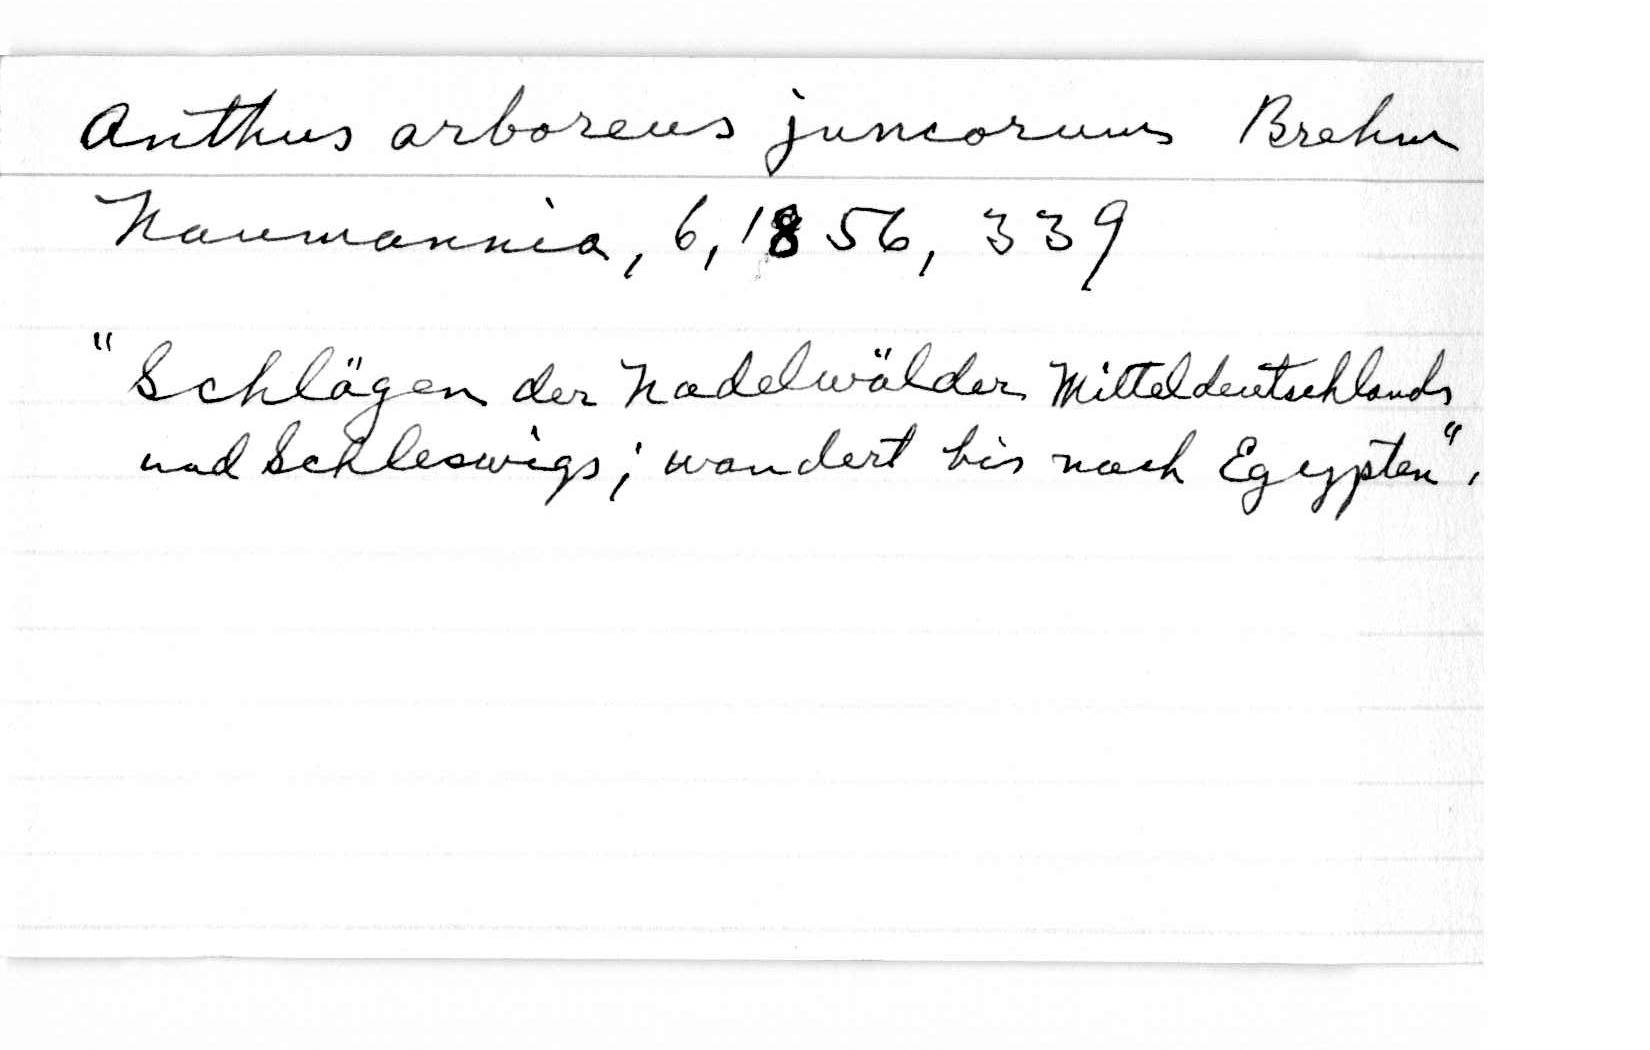 Anthus arboreus juncorum Brehm
Naumannia, 6, 1856, 339
"Schlägen der Nadelwälder Mitteldeutschlands
und Schleswigs; wandert bis nach Egypten".